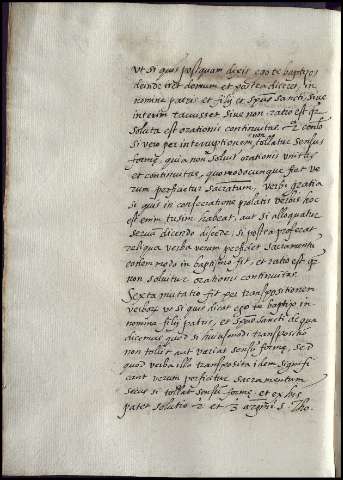 Ut si quis postquam dixit ego te baptizo,
deinde iret domum et postea diceret, in
nomine patris et filij et spūs sancti, siue
interim tacuisset siue non. ratio est qz
soluta est orationis continuitas. at
si vero per interruptionem non tollatur sensus
formę, quia non soluit orationis vnitas
et continuitas, quomodocunque fiat ve
rum perficitur sacratum, verbi gratia
si quis in consecratione prolatis verbis hoc
est enim tusim habeat, aut si alloquatur
seruum dicendo discede, si postea proferat
reliqua verba verum perficiet sacramentū
eodem modo in baptismo fit, et ratio est qz
non soluitur orationis continuitas.
Sexta mutatio fit per transpositionem
verborū ut si quis dicat ego te baptizo in
nomine filij patris, et spūs sancti de qua
dicemus quod si huiusmodi transpositio
non tollit aut variat sensū formę, sed
quod verba illo transposita idem signifi
cant verum perficitur sacramentum
secus si tollat sensū formę. et ex his
patet solutio 2 et 3 argūti s. Tho.